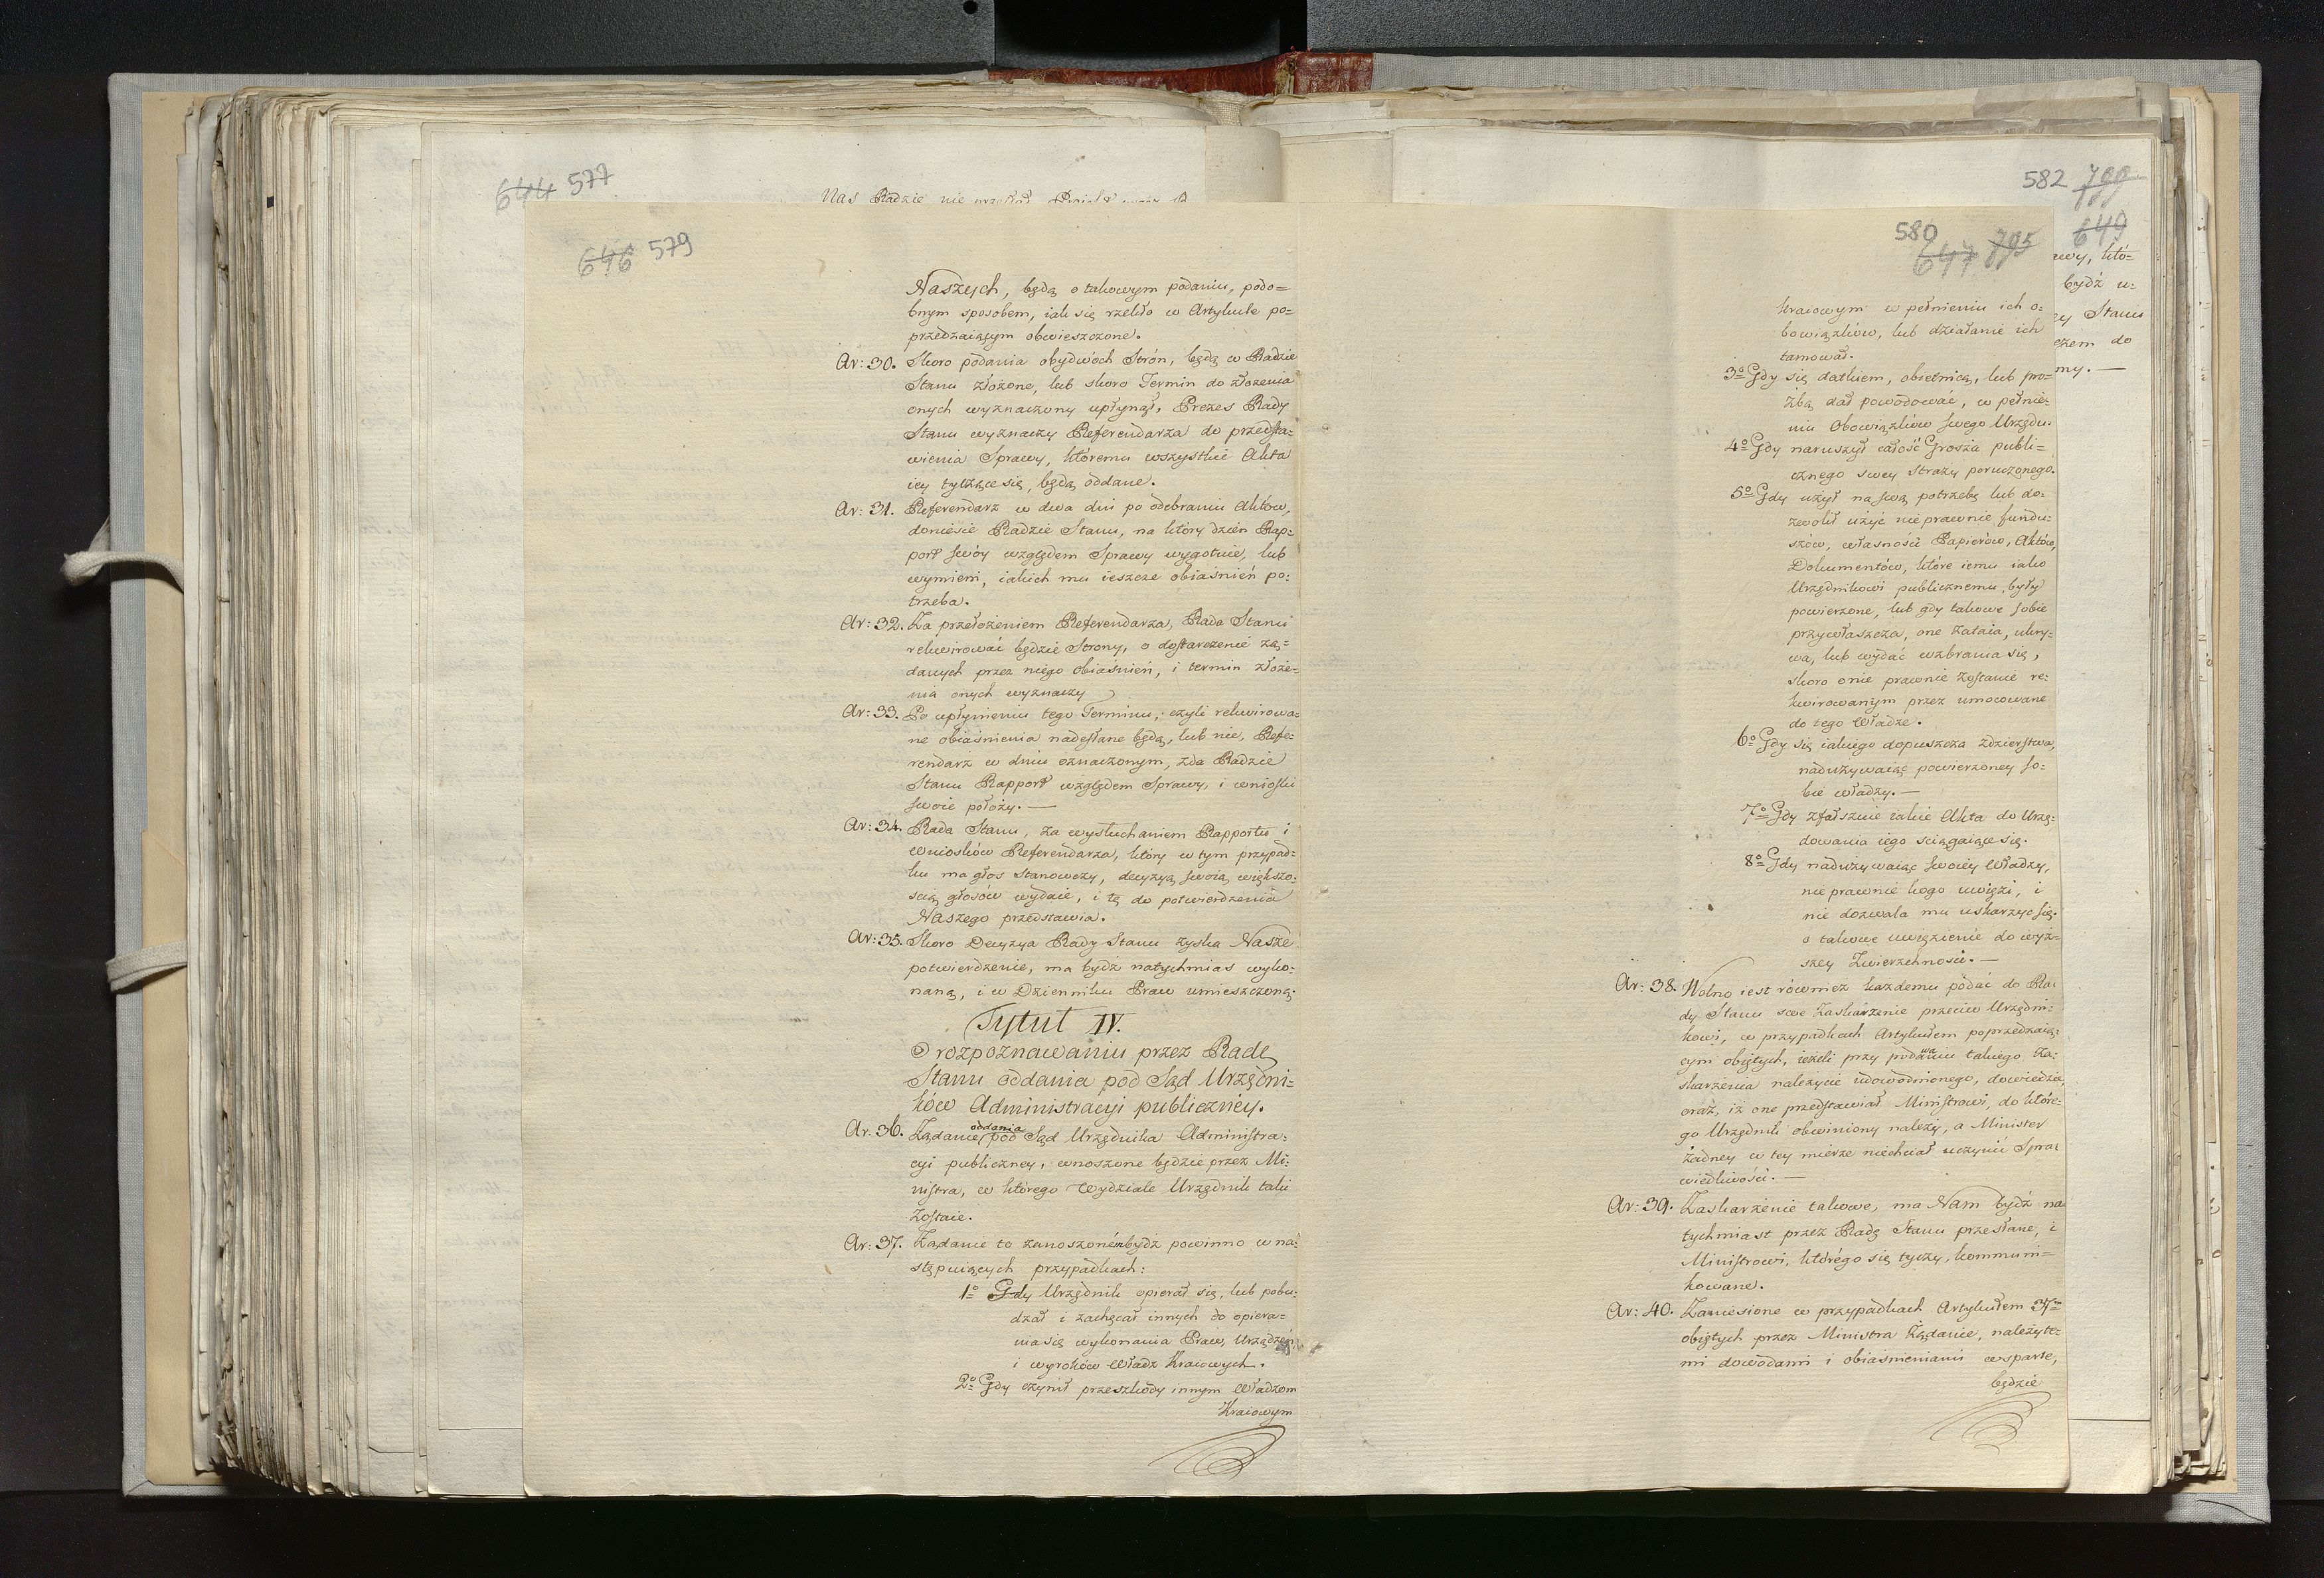 644 577
Nas Radzie nie
646 579
Naszych, będą o takowym podaniu, podo=
bnym sposobem, iak się rzekło w Artykule po=
przedzaiącym obwieszczone.
Ar: 30. Skoro podania obydwóch Strón, będą w Radzie
Stanu złożone, lub skoro Termin do złożenia
onych wyznaczony upłynął, Prezes Rady
Stanu wyznaczy Referendarza do przedsta=
wienia Sprawy, któremu wszystkie Akta
iey tyczące się, będą oddane.
Ar: 31. Referendarz w dwa dni po odebraniu Aktów,
doniesie Radzie Stanu, na który dzień Rap=
port swóy względem Sprawy wygotuie, lub
wymieni, iakich mu ieszcze obiaśnień po=
trzeba.
Ar: 32. Za przełożeniem Referendarza, Rada Stanu
rekwirować będzie Strony, o dostarczenie żą=
danych przez niego obiaśnień, i termin złoże=
nia onych wyznaczy
Ar: 33. Po upłynieniu tego Terminu, czyli rekwirowa=
ne obiaśnienia nadesłane będą, lub nie, Refe=
rendarz w dniu oznaczonym, zda Radzie
Stanu Rapport względem Sprawy, i wnioski
swoie położy. —
Ar: 34. Rada Stanu, za wysłuchaniem Rapportu i
Wniosków Referendarza, który w tym przypad=
ku ma głos stanowczy, decyzyą swoią większo=
scią głosów wydaie, i tę do potwierdzenia
Naszego przedstawia.
Ar: 35. Skoro Decyzya Rady Stanu zyska Nasze
potwierdzenie, ma bydź natychmias wyko=
naną, i w Dzienniku Praw umieszczoną.
Tytuł IV.
O rozpoznawaniu przez Radę
Stanu oddania pod Sąd Urzędni=
ków Administracyi publiczney.
Ar. 36. Żądanie oddania pod Sąd Urzędnika Administra=
cyi publiczney, wnoszone będzie przez Mi=
nistra, w którego Wydziale Urzędnik taki
zostaie.
Ar: 37. Żądanie to zanoszoném bydź powinno w na=
stępuiących przypadkach:
1o Gdy Urzędnik opierał się, lub pobu=
dzał i zachęcał innych do opiera=
nia się wykonania Praw, Urządzeń,
i wyroków Władz Kraiowych.
2o Gdy czynił przeszkody innym Władzom
Kraiowym
582 799
649
580
647 795
kraiowym w pełnieniu ich o=
bowiązków, lub działanie ich
tamował.
3o Gdy się datkiem, obietnicą, lub pro=
źbą dał powodować, w pełnie=
niu Obowiązków swego Urzędu.
4o Gdy naruszył całość Grosza publi=
cznego swey Straży poruczonego.
5o Gdy użył na swą potrzebę lub do=
zwolił użyć nieprawnie fundu=
szów, własności Papierów, Aktów,
Dokumentów, które iemu iako
Urzędnikowi publicznemu, były
powierzone, lub gdy takowe sobie
przywłaszcza, one zataia, ukry=
wa, lub wydać wzbrania się,
skoro o nie prawnie zostanie re=
kwirowanym przez umocowane
do tego Władze.
6o Gdy się iakiego dopuszcza zdzierstwa,
nadużywaiąc powierzoney so=
bie władzy. —
7o Gdy zfałszuie iakie Akta do Urzę=
dowania iego sciągaiące się.
8o Gdy nadużywaiąc swoiey Władzy,
nieprawnie kogo uwięzi, i
nie dozwala mu uskarżyć się.
o takowe uwięzienie do wyż=
szey Zwierzchności. —
Ar: 38. Wolno iest również każdemu podać do Ra=
dy Stanu swe Zaskarżenie przeciw Urzędni=
kowi, w przypadkach Artykułem poprzedzaią=
cym obiętych, ieżeli przy podaniu takiego Za=
skarżenia należycie udowodnionego, dowiedzie,
oraz, iż one przedstawiał Ministrowi, do które=
go Urzędnik obwiniony należy, a Minister
żadney w tey mierze niechciał uczynić Spra=
wiedliwości. —
Ar: 39. Zaskarżenie takowe, ma Nam bydź na=
tychmiast przez Radę Stanu przesłane, i
Ministrowi, którego się tyczy, kommuni=
kowane.
Ar: 40. Zaniesione w przypadkach Artykułem 37m
obiętych przez Ministra Żądanie, należyte=
mi dowodami i obiasnieniami wsparte,
będzie
któ=
bydź u=
Stanu
czem do
my. —